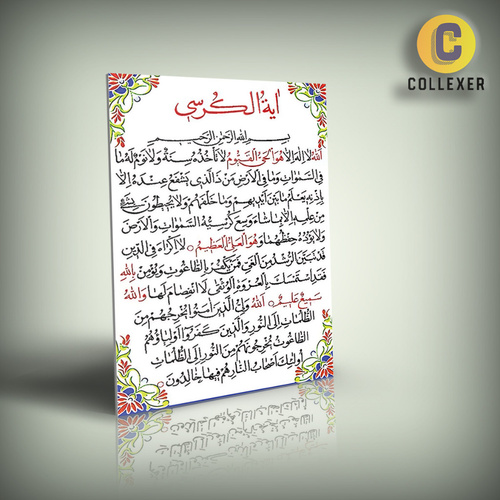 COLLEXER
اية الكرسي
بسم الله الرحمن الرحيم
الله لا اله الا هو الحي القيوم لا تأخذه سنة ولا نوم له ما
في السموات وما في الارض من ذا الذي يشفع عنده الا
باذنه يعلم ما بين ايديهم وما خلفهم ولا يحيطون بشيء
من علمه الا بما شاء وسع كرسيه السموات والارض
ولا يؤده حفظهما وهو العلي العظيم لا اكراه في الدين
قد تبين الرشد من الغي فمن يكفر بالطاغوت ويؤمن بالله
فقد استمسك بالعروة الوثقى لا انفصام لها والله
سميع عليم الله ولي الذين امنوا يخرجهم من
الظلمات الى النور والذين كفروا اولياؤهم
الطاغوت يخرجونهم من النور الى الظلمات
اولئك اصحاب النار هم فيها خالدون